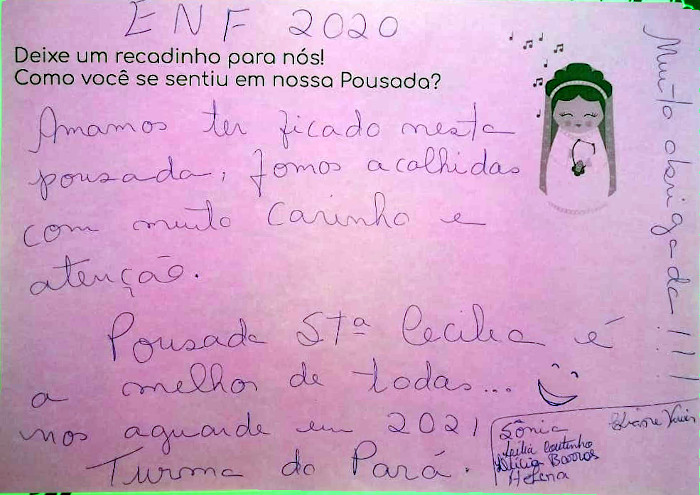 ENF 2020
Deixe um recadinho para nós!
Como você se sentiu em nossa Pousada?
Amamos ter ficado nesta
pousada, fomos acolhidas
com muito carinho e
atenção.
Pousada Stª Cecilia é
a melhor de todas...
nos aguarde em 2021
Turma do Pará.
Muito obrigada!!!
Sônia
Leilia Coutinho
Barros
Helena